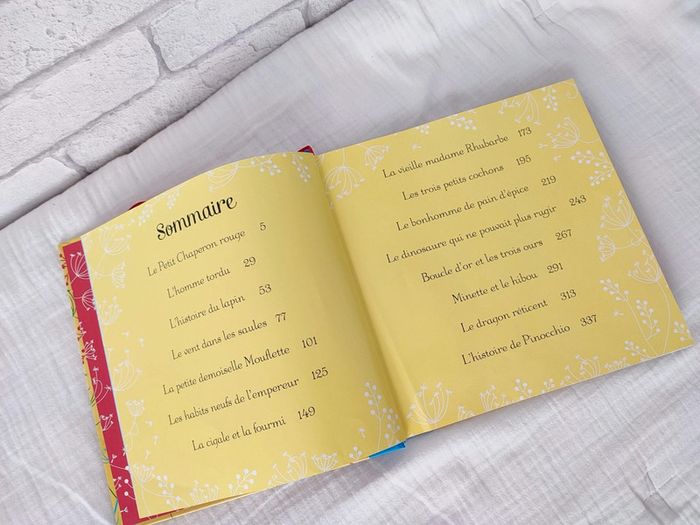 Sommaire
Le Petit Chaperon rouge 5
L'homme tordu 29
L'histoire du lapin 53
Le vent dans les saules 77
La petite demoiselle Mouflette 101
Les habits neufs de l'empereur 125
La cigale et la fourmi 149
La vieille madame Rhubarbe 173
Les trois petits cochons 195
Le bonhomme de pain d'épice 219
Le dinosaure qui ne pouvait plus rugir 243
Boucle d'or et les trois ours 267
Minette et le hibou 291
Le dragon réticent 313
L'histoire de Pinocchio 337